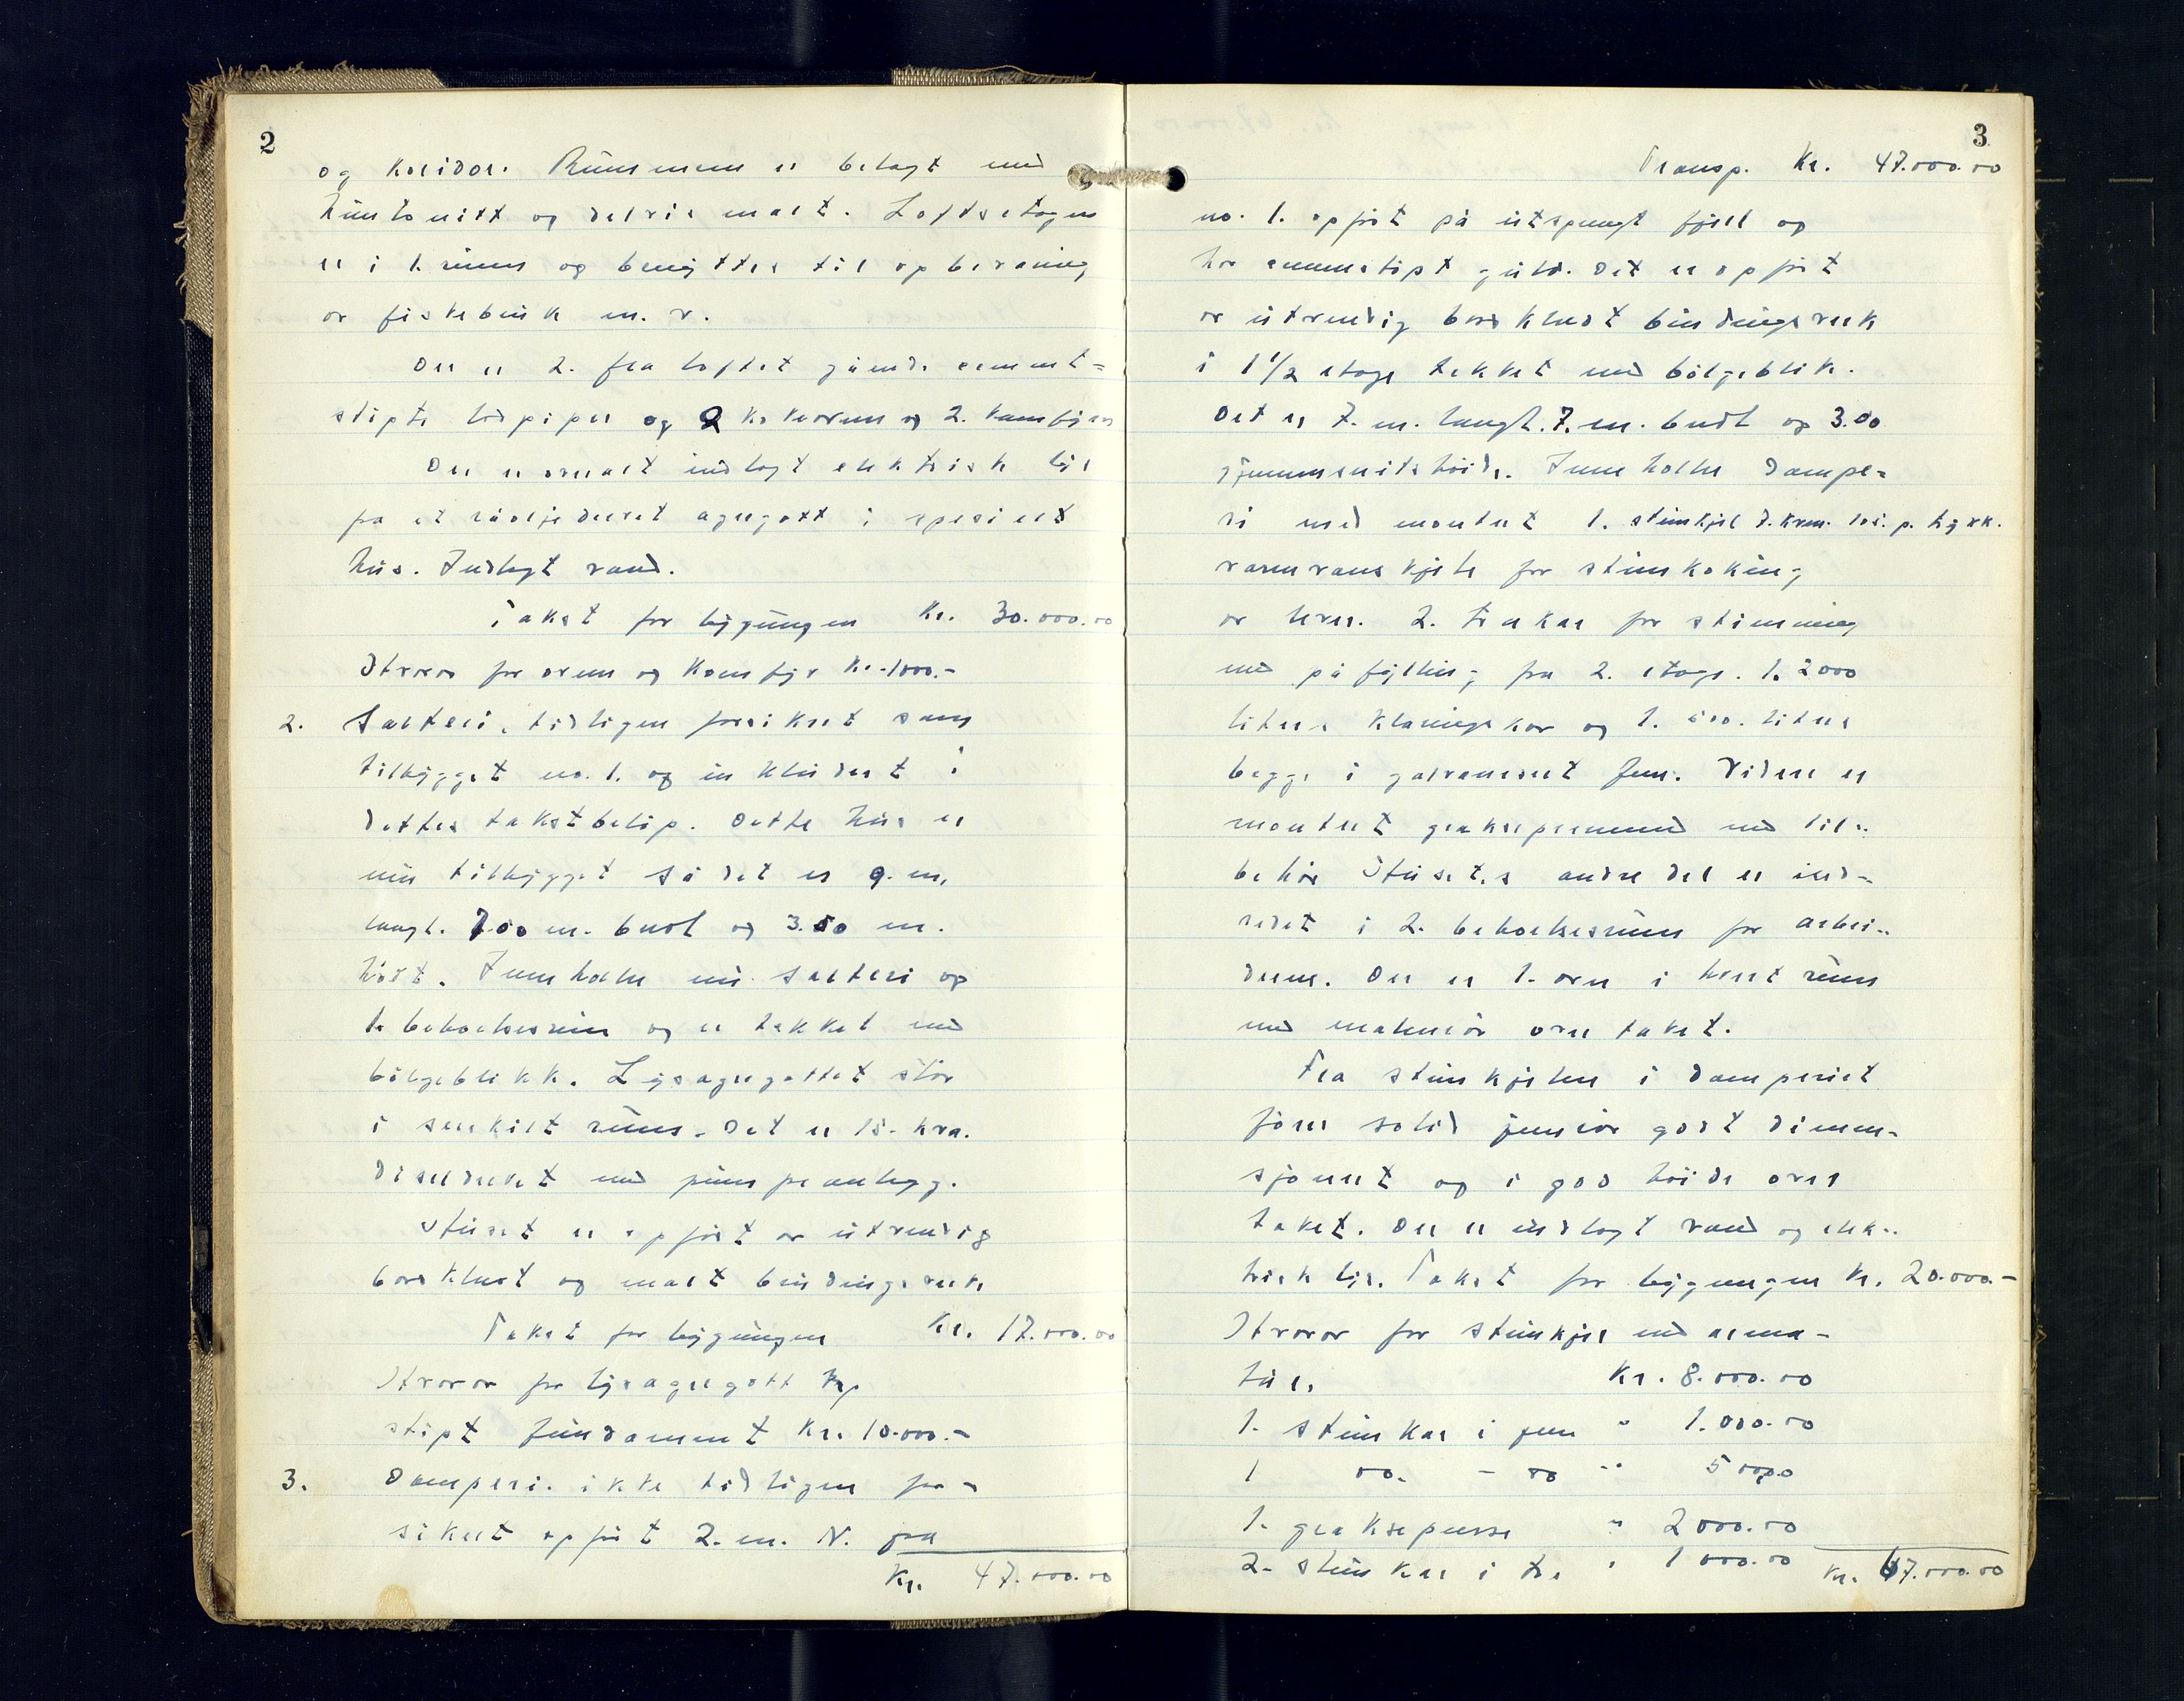 2
og koridor. Rummene er belagt med
huntonitt og delvis malt. Loftsetagen
er i 1. rum og benyttes til opbevaring
av fiskebruk m. v.
Der er 2. fra loftet gående cement-
støpte ildpiper og 2 kokeovner og 2. kamfyrer
Der er overalt indlagt elektrisk lys
fra et råoljedrevet agregatt i spesielt
hus. Indlagt vand.
Takst for bygningen Kr. 30.000.00
Itvovor for ovnen og komfyr Kr. 1000.-
2. Salteri, tidligere forsikret som
tilbygget no. 1. og inkludert i
dettes takstbeløp. Dette hus er
nu tilbygget så det er 9. m.
langt. 7.00 m. bredt og 3.50 m.
høit. Inneholder nu salteri og
1. beboelsesrum og er tækket med
bølgeblikk. Lysagregattet står
i serskilt rum. Det er 15. hkr.
diseldrevet med pumpeanlegg.
Huset er opført av utvendig
bordkledt og malt bindingsverk
Takst for bygningen Kr. 17.000.00
Itvovor for lysagregatt og
støpt fundament Kr. 10.000.-
3. Damperi. ikke tidligere for-
sikret opført 2. m. N. fra
Kr. 47.000.00
3
Transp. Kr. 47.000.00
no. 1. opført på utsprengt fjell og
har cementstøpt gulv. Det er opført
av utvendig bordkledt bindingsverk
i 1 1/2 etage tekket med bølgeblik.
Det er 7. m. langt. 7. m. bredt og 3.00
gjennemsnitshøide. Inneholder dampe-
ri med montert 1. stimkjel 7. kvm. p. trykk.
varmvanskjele for stimkoking
av lever. 2. trekar for stimming
med påfylling fra 2. etage. 1. 2000
liters klaringskar og 1. 500. liters
begge i galvanisert jern. Videre er
montert graksepresse med til-
behør. Husets andre del er ind-
redet i 2. beboelsesrum for arbei-
derne. Der er 1. ovn i hvert rum
med malmrør over taket.
Fra stimkjelen i damperiet
fører solid jernrør godt dimen-
sjonert og i god høide over
taket. Der er indlagt vand og elek-
trisk lys. Takst for bygningen Kr. 20.000.-
Itvovor for stimkjel med arma-
tur. Kr. 8.000.00
1. stimkar i jern " 1.000.00
1 do. - do " 500.0
1. graksepresse " 2000.00
2. stimkar i tre " 1000.00 Kr. 67.000.00